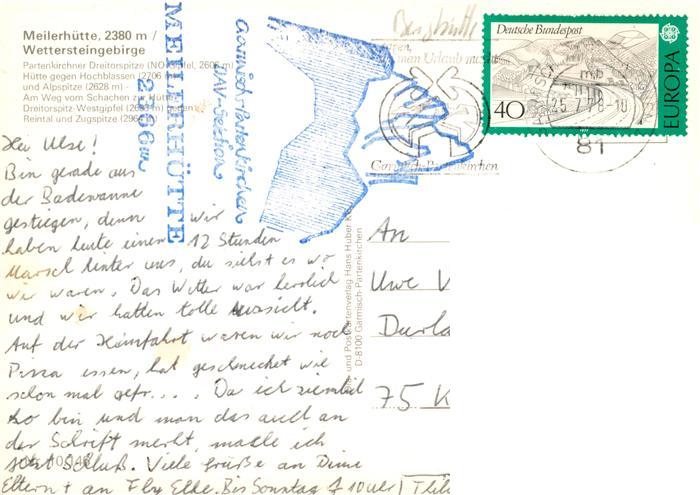 Meilerhütte, 2380 m /
Wettersteingebirge
Partenkirchner Dreitorspitze (NO-Gipfel, 2606 m)
Hütte gegen Hochblassen (2706 m)
und Alpspitze (2628 m) -
Am Weg vom Schachen zur Hütte
Dreitorspitz-Westgipfel (2633 m) gegen
Reintal und Zugspitze (2964
MEILERHÜTTE
2366m
Garmisch-Partenkirchen
Berghütte
Garmisch-Partenkirchen
Deutsche Bundespost
40
EUROPA
25.7.78-10
81
Hei Uwe!
Bin gerade aus
der Badewanne
gestiegen, denn wir
haben heute einen 12 Stunden
Marsch hinter uns, du siehst es wo
wir waren. Das Wetter war herrlich
und wir hatten tolle Aussicht.
Auf der Heimfahrt waren wir noch
Pizza essen, hat geschmecket wie
schon mal gefr.... Da ich ziemlich
ko bin und man das auch an
der Schrift merkt, mache ich
jetzt Schluß. Viele Grüße an Deine
Eltern + an Bis Sonntag
und Postkartenverlag Hans Huber K
D-8100 Garmisch-Partenkirchen
An
Uwe V
Durla
75 K